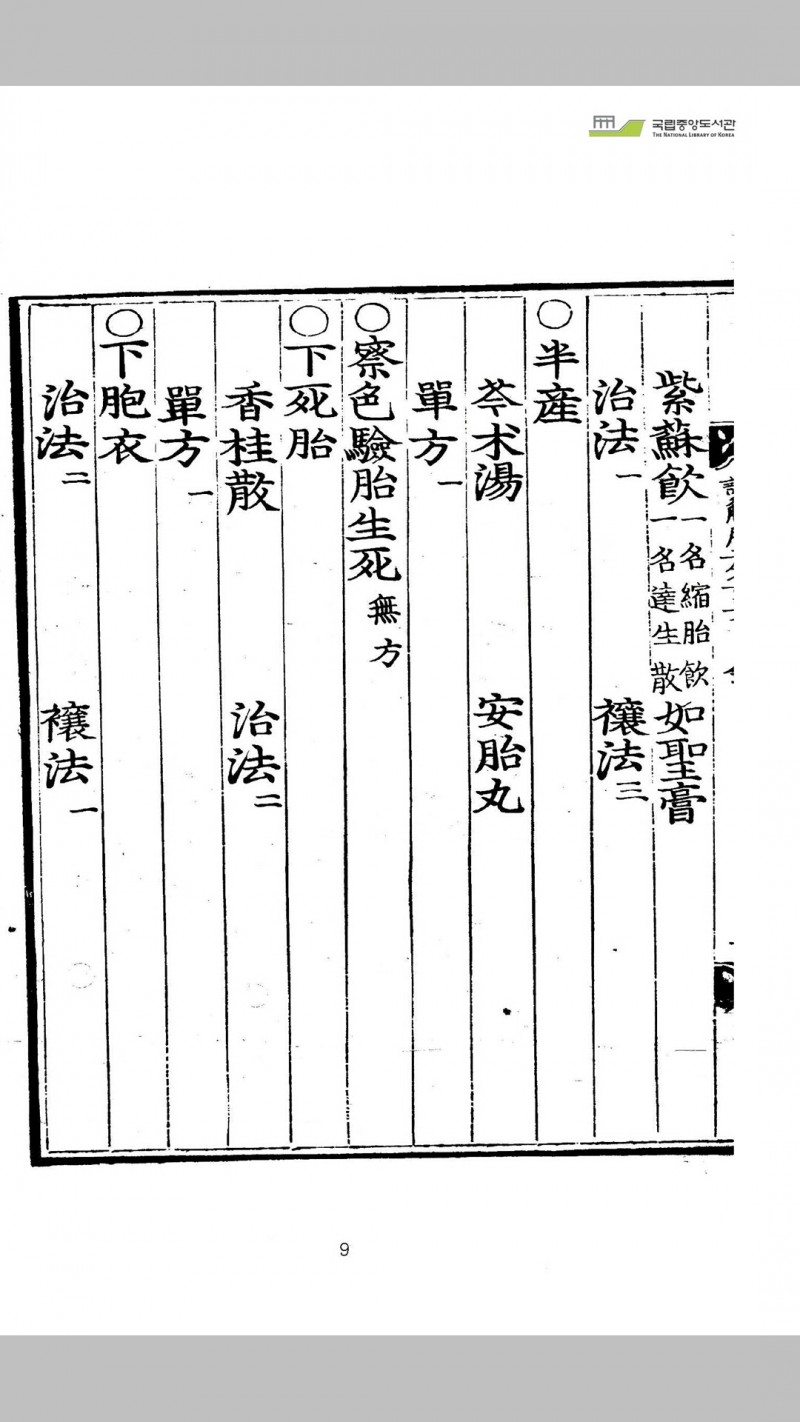 국립중앙도서관
THE NATIONAL LIBRARY OF KOREA
紫蘇飮 一名縮胎飮 一名達生散 如聖膏
治法 一 禳法 三
○半産
芩朮湯 安胎丸
單方 一
○察色驗胎生死 無方
○下死胎
香桂散 治法 二
單方 一
○下胞衣
治法 二 禳法 一
9